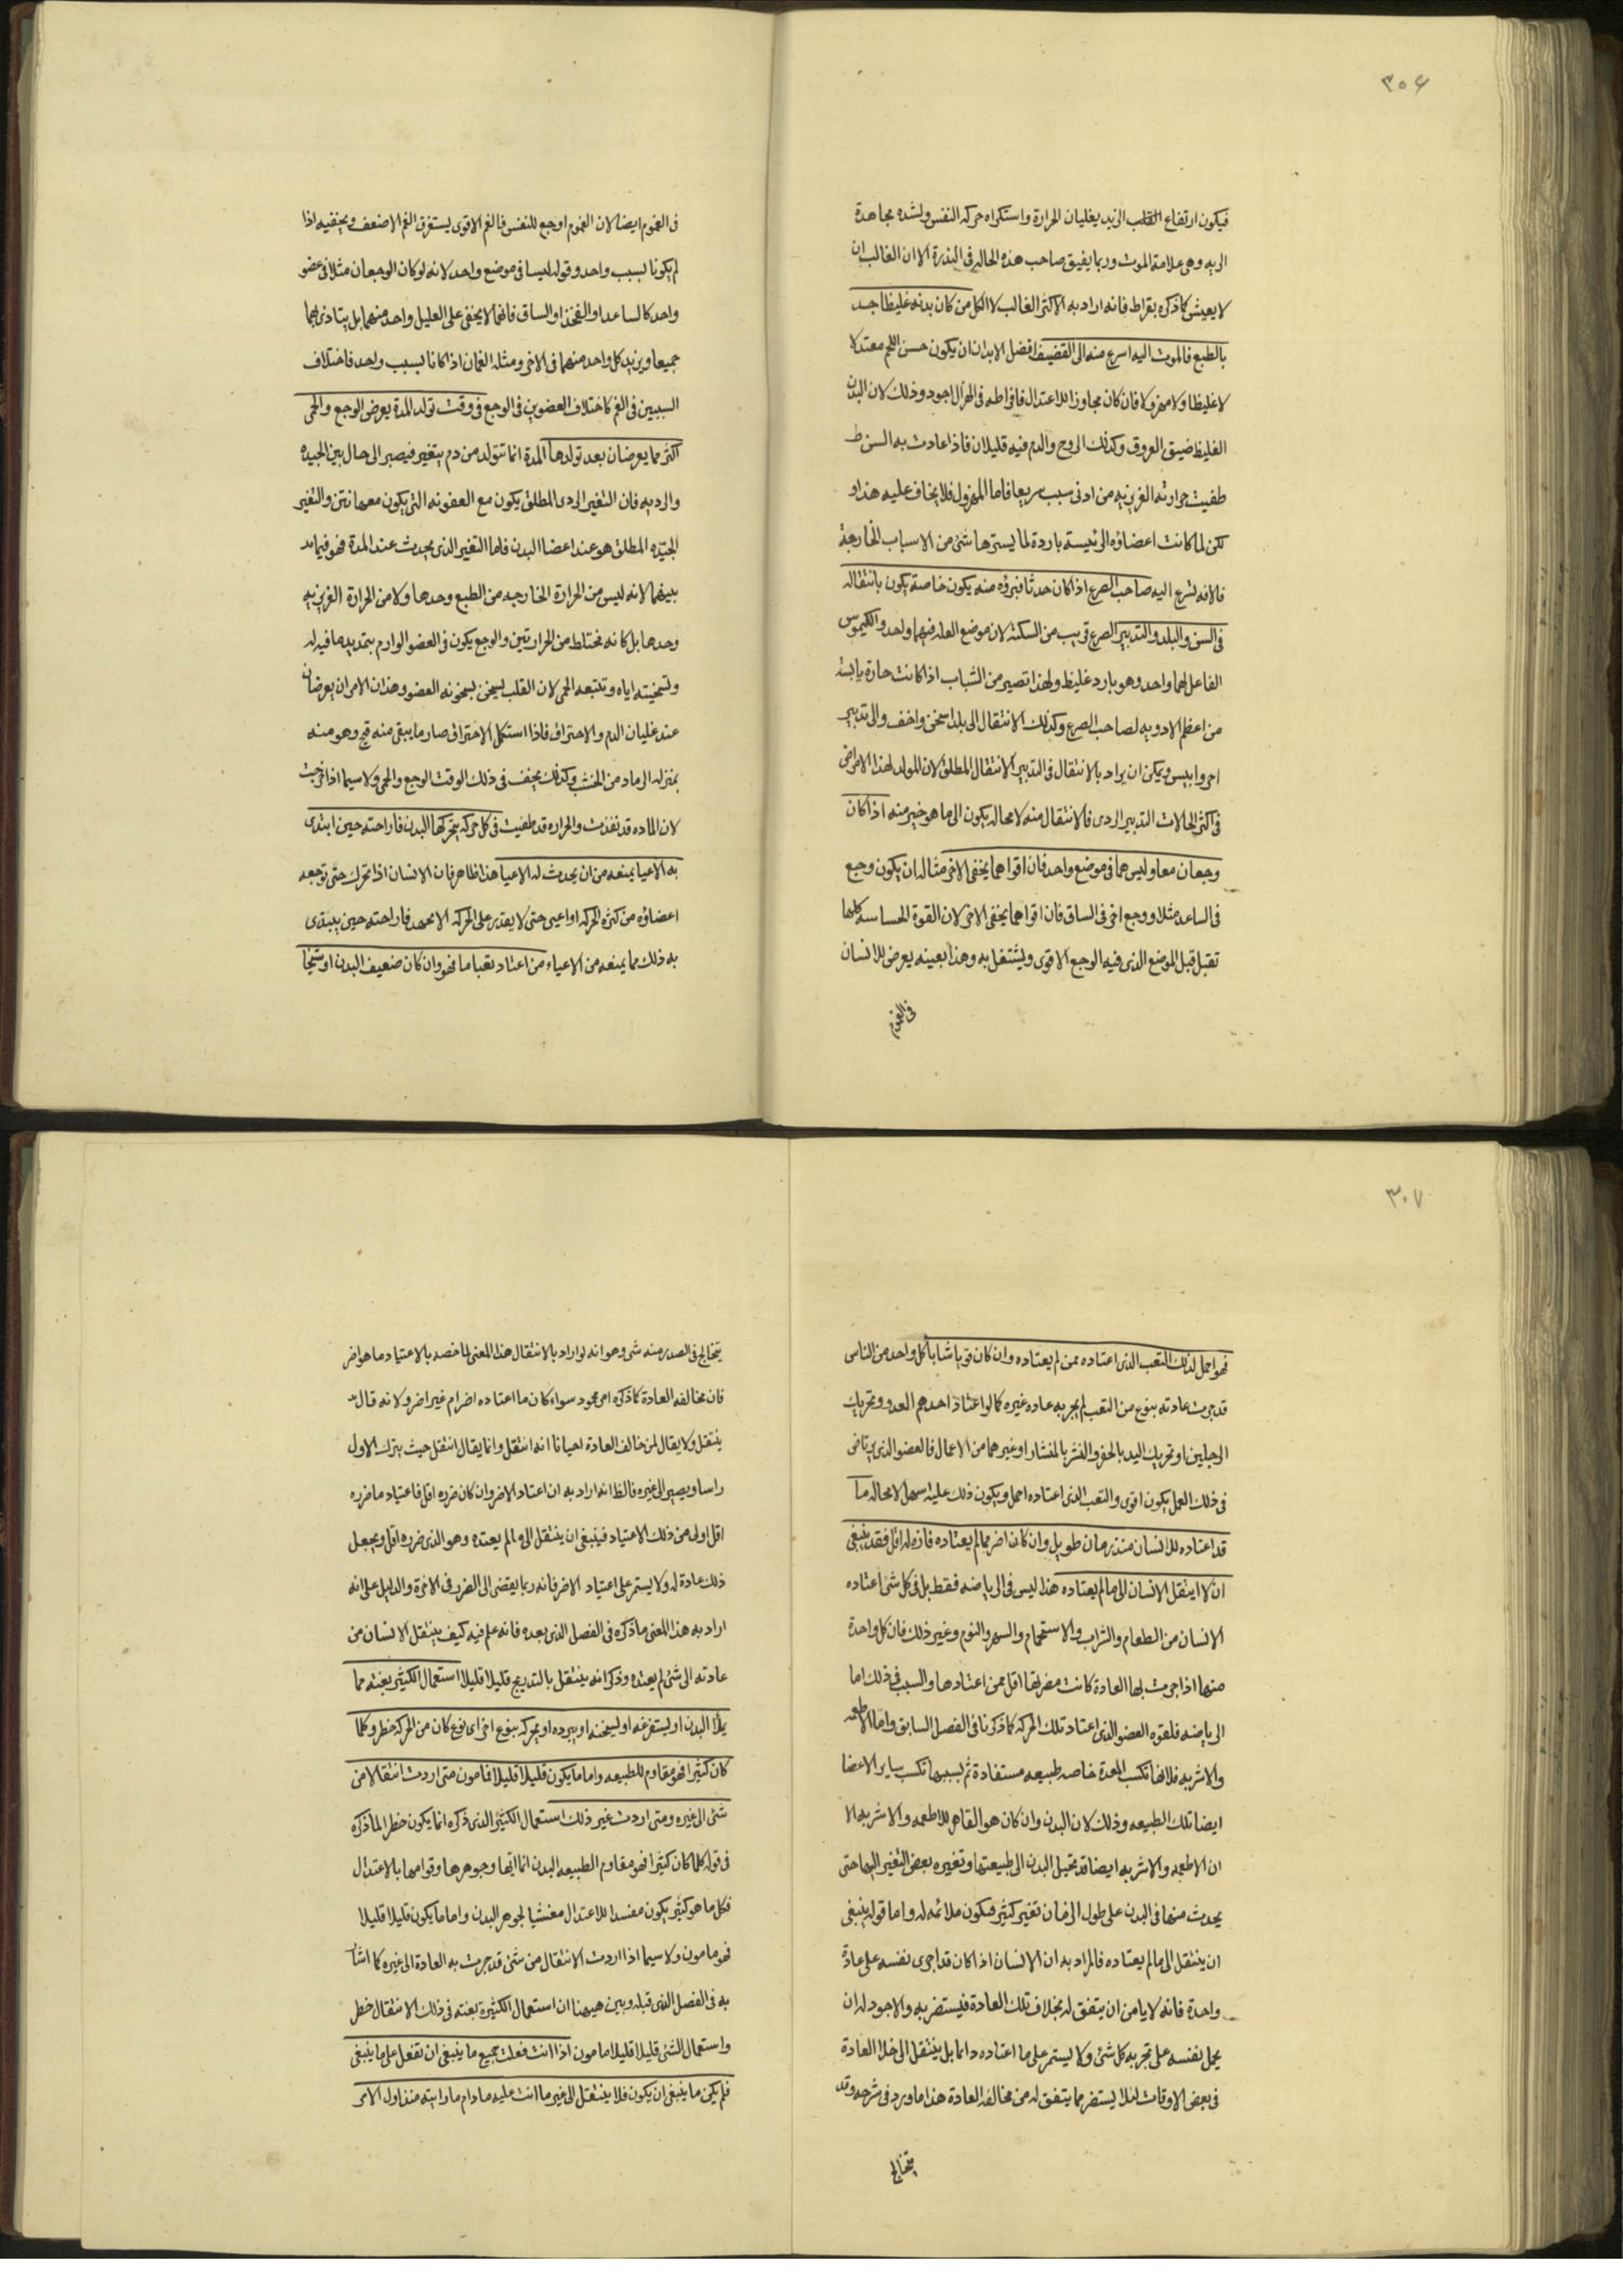 ٣٠٦
فيكون ارتفاع القلب الزبد بغليان الحرارة واستكراه حركه النفس ولشده مجاهدة
الريه وهى علامة الموت وربما يفيق صاحب هذه الحاله فى الندرة الا ان الغالب ان
لا يعيش كما ذكره بقراط فانه اراد به الاكثر الغالب لا الكل من كان بدنه غليظا جدا
بالطبع فالموت اليه اسرع منه الى القضيف افضل الابدان ان يكون حسن اللحم معتدلا
لا غليظا ولا مهزولا فان كان مجاوزا للاعتدال فافراطه فى الهزال اجود وذلك لان البدن
الغليظ ضيق العروق وكذلك الروح والدم فيه قليلان فاذا عادت به السن
طفيت حرارته الغريزيه من ادنى سبب سريعا فاما المهزول فلا يخاف عليه هذا و
لكن لما كانت اعضاؤه الرئيسة باردة لما يسترها شئ من الاسباب الخارجة
فالافه تسرع اليه صاحب الصرع اذا كان حدثا فبرؤه منه يكون خاصة يكون بانتقاله
فى السن والبلد والتدبير الصرع قريب من السكتة لان موضع العله فيهما واحد والكيموس
الفاعل لهما واحد وهو بارد غليظ ولهذا تصير من الشباب اذا كانت حارة يابسة
من اعظم الادويه لصاحب الصرع وكذلك الانتقال الى بلد اسخن واخف والى تدبير
احر وايبس ويمكن ان يراد بالانتقال فى التدبير الانتقال المطلق لان المولد لهذا الامراض
فى اكثر الحالات التدبير الردى فالانتقال منه لا محاله يكون الى ما هو خير منه اذا كان
وجعان معا وليس هما فى موضع واحد فان اقواهما يخفى الاخر مثاله ان يكون وجع
فى الساعد مثلا ووجع اخر فى الساق فان اقواهما يخفى الاخر لان القوة الحساسه كلها
تقبل قبل الموضع الذى فيه الوجع الاقوى ويشتغل به وهذا بعينه يعرض للانسان
فى الغموم
فى الغموم ايضا لان الغموم اوجع للنفس فالغم الاقوى يستغرق الغم الاضعف ويخفيه اذا
لم يكونا بسبب واحد وقوله ليسا فى موضع واحد لانه لو كان الوجعان مثلا فى عضو
واحد كالساعد او الفخذ او الساق فانهما لا يخفى على العليل واحد منهما بل يتاذى بهما
جميعا ويزيد كل واحد منهما فى الاخر ومثله الغمان اذا كانا بسبب واحد فاختلاف
السببين فى الغم كاختلاف العضوين فى الوجع فى وقت تولد المدة يعرض الوجع والحمى
اكثر مما يعرضان بعد تولدها المدة انما تتولد من دم يتغير فيصير الى حال بين الجيده
والرديه فان التغير الردى المطلق يكون مع العفونه التى يكون معها نتن والتغير
الجيده المطلق هو عند اعضا البدن فاما التغير الذى يحدث عند المدة فهو فيما
بينهما لانه ليس من الحرارة الخارجه من الطبع وحدها ولا من الحرارة الغريزيه
وحدها بل كانه مختلط من الحرارتين والوجع يكون فى العضو الوارم بتمديد ما فيه له
وتسخينه اياه وتتبعه الحمى لان القلب يسخن بسخونه العضو وهذان الامران يعرضان
عند غليان الدم والاحتراق فاذا استكمل الاحتراق صار ما يبقى منه قيح وهو منه
بمنزله الرماد من الخشب وكذلك يخف فى ذلك الوقت الوجع والحمى ولا سيما اذا خرجت
لان الماده قد نفذت والحراره قد طفيت فى كل حركه يتحركها البدن فاراحته حين ابتدى
به الاعيا يمنعه من ان يحدث له الاعيا هذا ظاهر فان الانسان اذا تحرك حتى توجعه
اعضاؤه من كثره الحركه او اعيى حتى لا يقدر على الحركه الا بجهد فاراحته حين يبتدى
به ذلك مما يمنعه من الاعياء من اعتاد تعبا ما فهو وان كان ضعيف البدن او شيخا
٣٠٧
فهو احمل لذلك التعب الذى اعتاده ممن لم يعتاده وان كان قويا شابا كل واحد من الناس
قد جرت عادته بنوع من التعب لم يجر به عاده غيره كما لو اعتاد احدهم العدو وتحريك
الرجلين او تحريك اليد بالحفر والنشر بالمنشار او غيرهما من الاعمال فالعضو الذى يرتاض
فى ذلك العمل يكون اقوى والتعب الذى اعتاده احمل ويكون ذلك عليه اسهل لا محاله ما
قد اعتاده للانسان منذ زمان طويل وان كان اضر مما لم يعتاده فاذاه له اقل فقد ينبغى
ان لا ينتقل الانسان الى ما لم يعتاده هذا ليس فى الرياضه فقط بل فى كل شئ اعتاده
الانسان من الطعام والشراب والاستحمام والسهر والنوم وغير ذلك فان كل واحدة
منها اذا جرت بها العادة كانت مضرتها اقل ممن اعتادها والسبب فى ذلك اما
الرياضه فلقوه العضو الذى اعتاد تلك الحركه كما ذكرنا فى الفصل السابق واما الاطعمه
والاشربه فلانها تكسب المعدة خاصه طبيعه مستفادة ثم بسببها تكسب ساير الاعضا
ايضا تلك الطبيعه وذلك لان البدن وان كان هو القاهر للاطعمه والاشربه الا
ان الاطعمه والاشربه ايضا قد تحيل البدن الى طبيعتها وتغيره بعض التغير اليها حتى
يحدث منها فى البدن على طول الزمان تغير كثير فيكون ملائمه له واما قوله ينبغى
ان ينتقل الى ما لم يعتاده فالمراد به ان الانسان اذا كان قد اجرى نفسه على عادة
واحدة فانه لا يامن ان يتفق له بخلاف تلك العادة فيستضر به والاجود له ان
يحمل نفسه على تجربه كل شئ ولا يستمر على ما اعتاده دائما بل ينتقل الى خلاف العادة
فى بعض الاوقات لئلا يستضر مما يتفق له من مخالفه العادة هذا ما ورد فى شرحه وقد
يتخالج
يتخالج فى الصدر منه شى وهو انه لو اراد بالانتقال هذا المعنى لما خصه بالاعتياد ما هو اضر
فان مخالفه العادة كما ذكره امر محمود سواء كان ما اعتاده اضر ام غير اضر ولانه قال
ينتقل ولا يقال لمن خالف العادة احيانا انه انتقل وانما يقال انتقل حيث يترك الاول
راسا ويصير الى غيره فالظ انه اراد به ان اعتاد الاضر وان كان ضرره اقل فاعتياد ما ضرره
اقل اولى من ذلك الاعتياد فينبغى ان ينتقل الى ما لم يعتده وهو الذى ضرره اقل ويجعل
ذلك عادة له ولا يستمر على اعتياد الاضر فانه ربما يفضى الى الضرر فى الاخرة والدليل على انه
اراد به هذا المعنى ما ذكره فى الفصل الذى بعده فانه علم فيه كيف ينتقل الانسان من
عادته الى شئ لم يعتده وذكر انه ينتقل بالتدريج قليلا قليلا استعمال الكثير بغته مما
يملأ البدن او يستفرغه او يسخنه او يبرده او يحركه بنوع اخر اى نوع كان من الحركه خطر وكلما
كان كثيرا فهو مقاوم للطبيعه واما ما يكون قليلا قليلا فمامون متى اردت انتقالا من
شئ الى غيره ومتى اردت غير ذلك استعمال الكثير الذى ذكره انما يكون خطرا لما ذكره
فى قوله كلما كان كثيرا فهو مقاوم الطبيعه البدن انما وجوهرها وقوامها بالاعتدال
فكل ما هو كثير يكون مفسدا للاعتدال لجوهر البدن واما ما يكون قليلا قليلا
فهو مامون ولا سيما اذا اردت الانتقال من شئ قد جرت به العادة الى غيره كما اشار
به فى الفصل الذى قبله وبين هيهنا ان استعمال الكثيره بغته فى ذلك الانتقال خطر
واستعمال الشئ قليلا قليلا مامون اذا انت فعلت جميع ما ينبغى ان تفعل على ما ينبغى
فلم يكن ما ينبغى ان يكون فلا ينتقل الى غير ما انت عليه مادام ما رايته منذ اول الامر